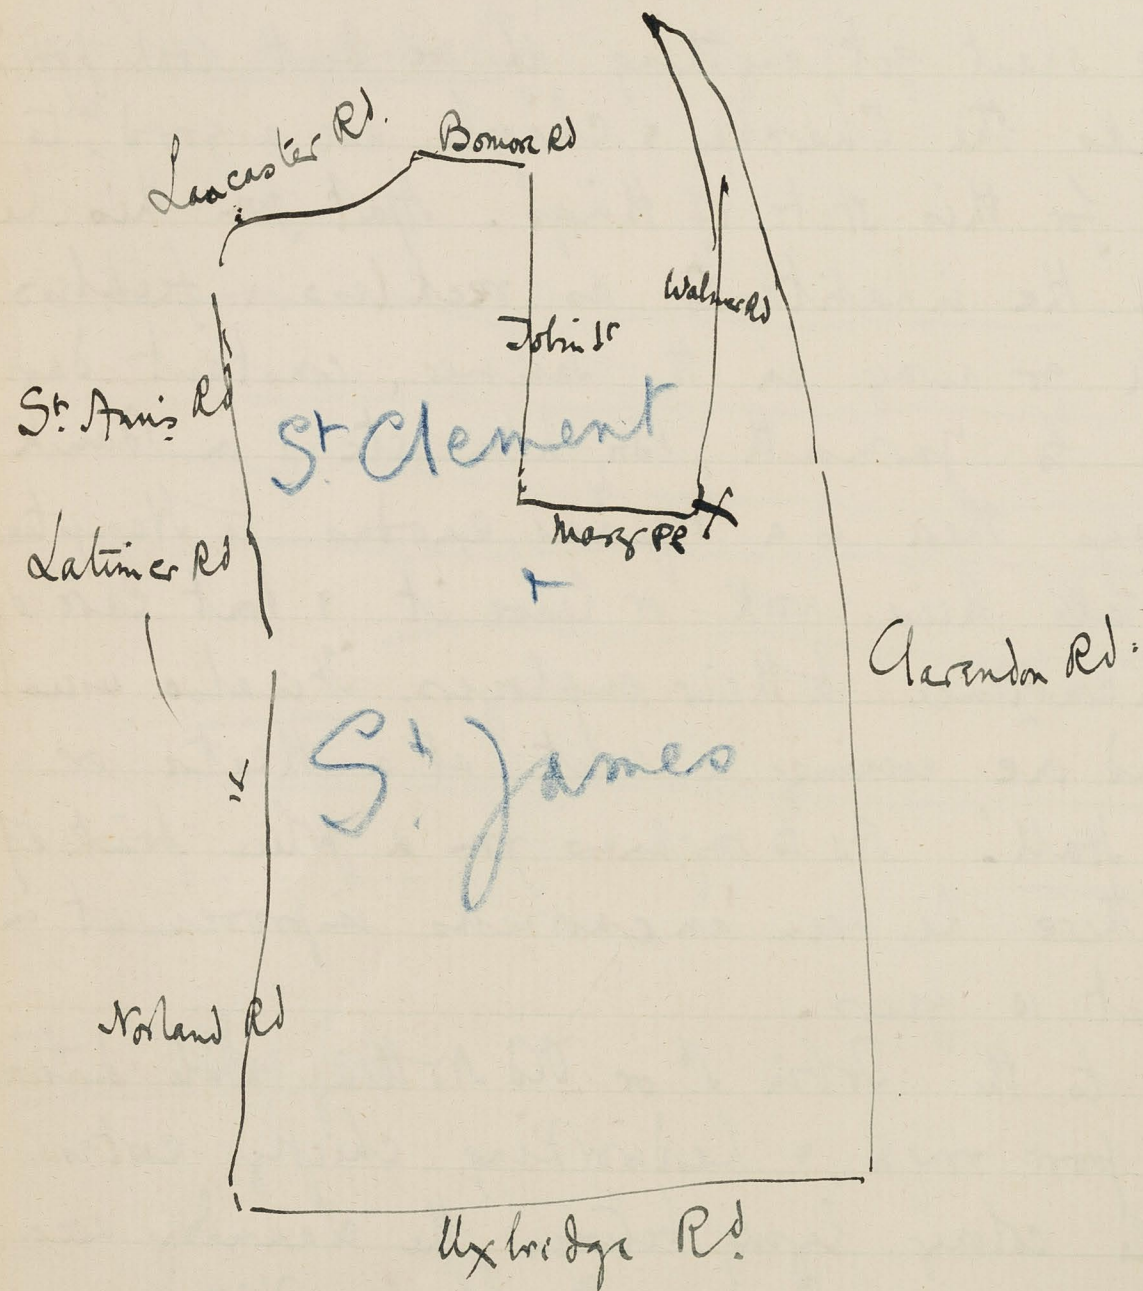 Lancaster Rd.
Bomore Rd
Walmer Rd
John St
St. Ann's Rd
St Clement
Mary Pl
Latimer Rd
Clarendon Rd.
St. James
Norland Rd
Uxbridge Rd.